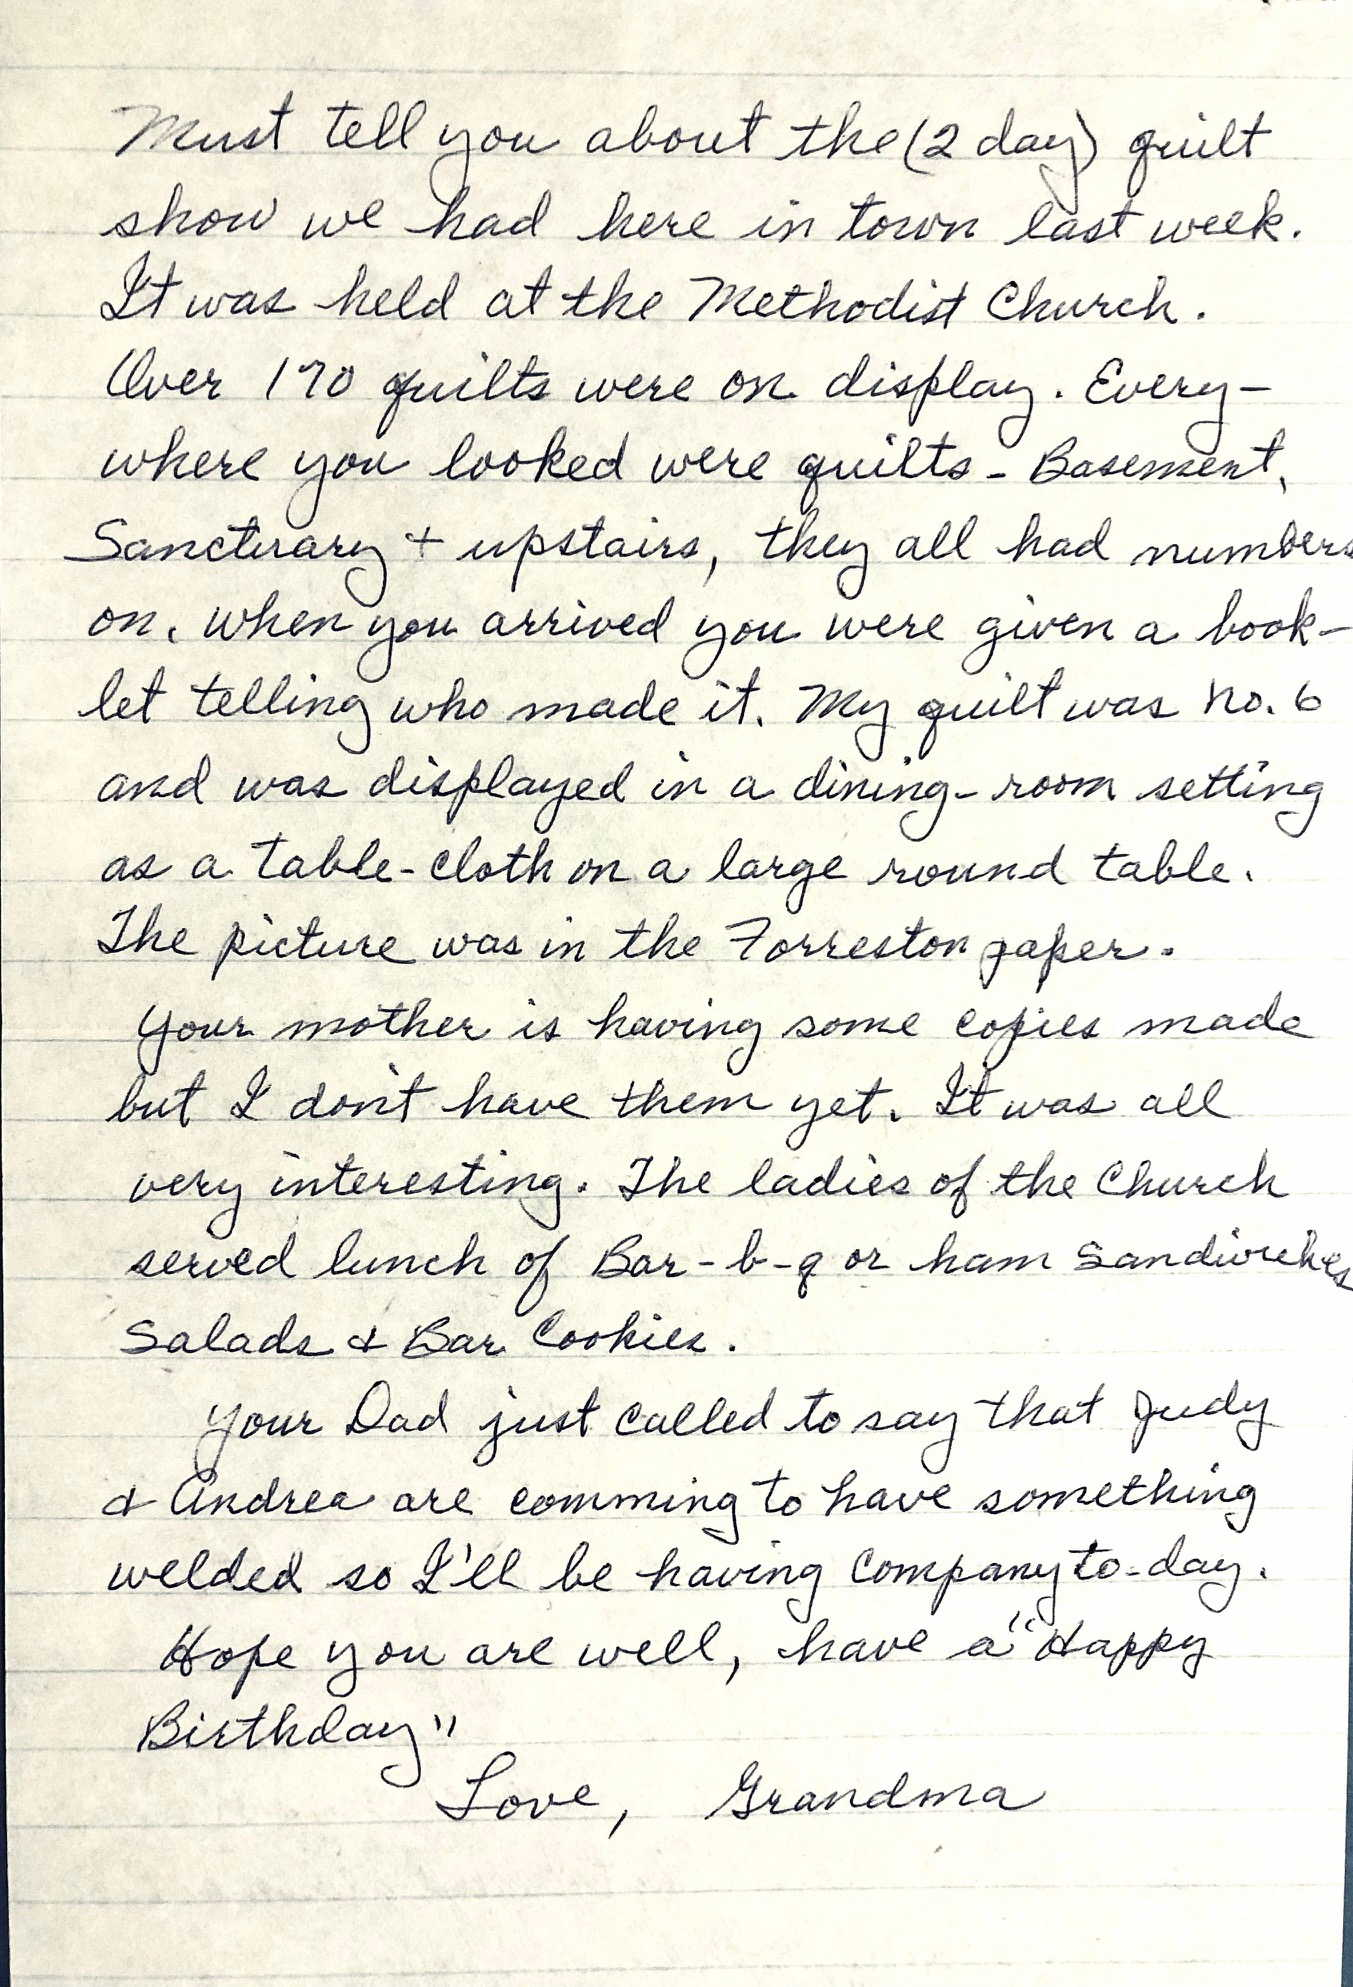 Must tell you about the (2 day) quilt
show we had here in town last week.
It was held at the Methodist Church.
Over 170 quilts were on display. Every-
where you looked were quilts - Basement,
Sanctuary + upstairs, they all had numbers
on. When you arrived you were given a book-
let telling who made it. My quilt was no. 6
and was displayed in a dining-room setting
as a table-cloth on a large round table.
The picture was in the Forreston paper.
Your mother is having some copies made
but I don't have them yet. It was all
very interesting. The ladies of the Church
served lunch of Bar-b-q or ham Sandwiches
Salads & Bar Cookies.
Your Dad just called to say that Judy
& Andrea are comming to have something
welded so I'll be having Company to-day.
Hope you are well, have a "Happy
Birthday"
Love, Grandma